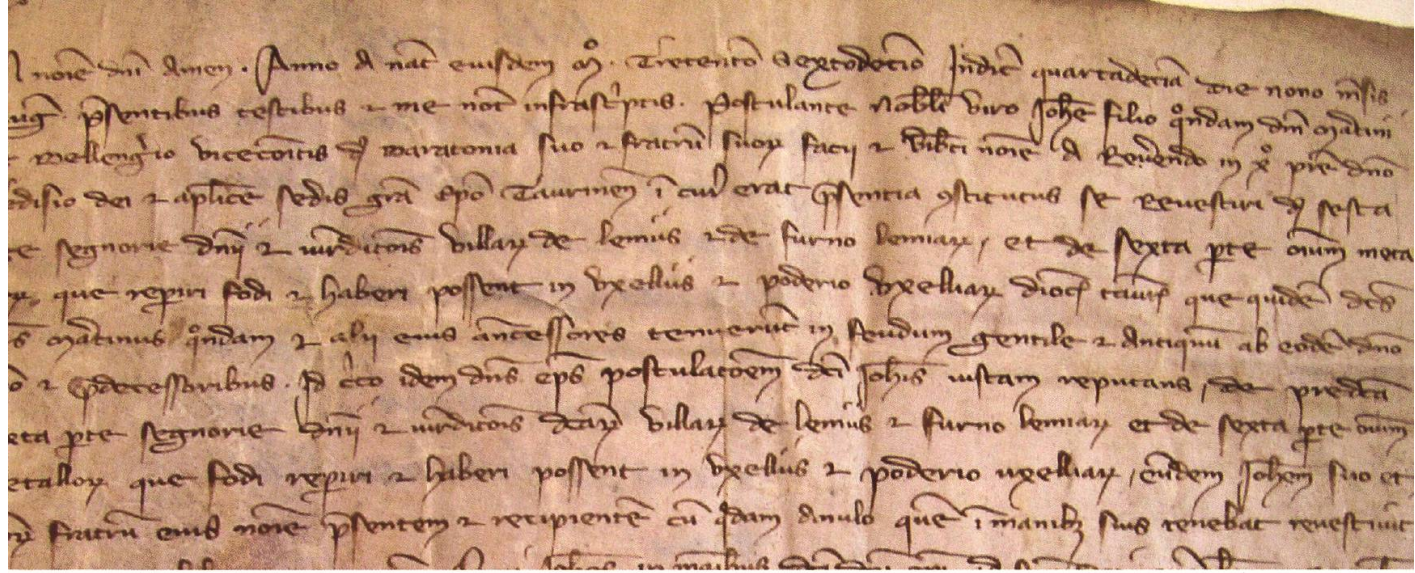 noīe dnī Amen. Anno A nat̄ eiusdem Mͦ. Trecentō Sextodeciō Indic̄ quartadeciā die nono m̄sis
uḡ. p̄sentibus testibus et me not̄ infrasc̓ptis. Postulante Nobł̄i viro Ioh̄e filio qͦndam dnī Martini
Bellengr̓io vicecōitis de Baratonia suo et fratrū suoꝝ facij et noīe A Reūendo in xͦ prē dnō
disio dei et apl̄ice sedis grā Ep̄o Taurineñ ī cuiꝰ erat p̄sentia ꝯstitutus se Revestiri de sesta
te segnorie dnij et iur̄dictōis villaꝝ de lemiis et de furno lemiaꝝ, et de sexta ꝑte oīum meta
que reꝑiri fodi et haberi possent in vxellis et poderio vxelliaꝝ dioc̄ taur̄ que quidē dc̄s
s̄ Martinus qͦndam et alij eius an̄cessores tenuerūt in feudum gentile et Antiquū ab eodē dnō
ō et p̄decessoribus. Id c̓co idem dn̄s ep̄s postulac̄oem dc̄i Ioh̄is iustam reputans, de predc̄a
eta ꝑte segnorie dnij et iur̄dictōis dc̄aꝝ villaꝝ de lemiis et furno lemiaꝝ et de sexta ꝑte oīum
etalloꝝ que fodi reꝑiri et haberi possent in vxellis et poderio uxelliaꝝ, eūdem Ioh̄em suo et
fratrū eius noīe p̄sentem et recipientē cū qͣdam Anulo quē ī manibꝫ suis tenebat reuestiuit